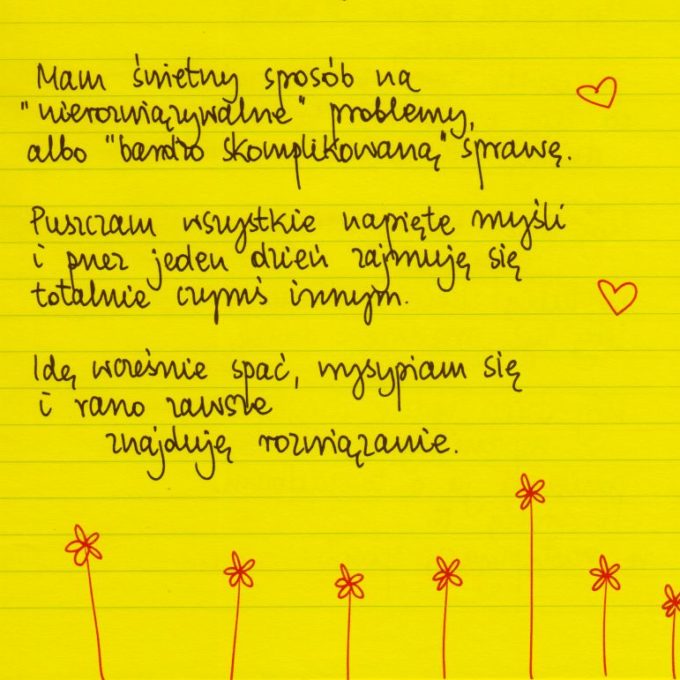 Mam świetny sposób na
"nierozwiązywalne" problemy,
albo "bardzo skomplikowaną" sprawę.
Puszczam wszystkie napięte myśli
i przez jeden dzień zajmuję się
totalnie czymś innym.
Idę wcześnie spać, wysypiam się
i rano zawsze
znajduję rozwiązanie.